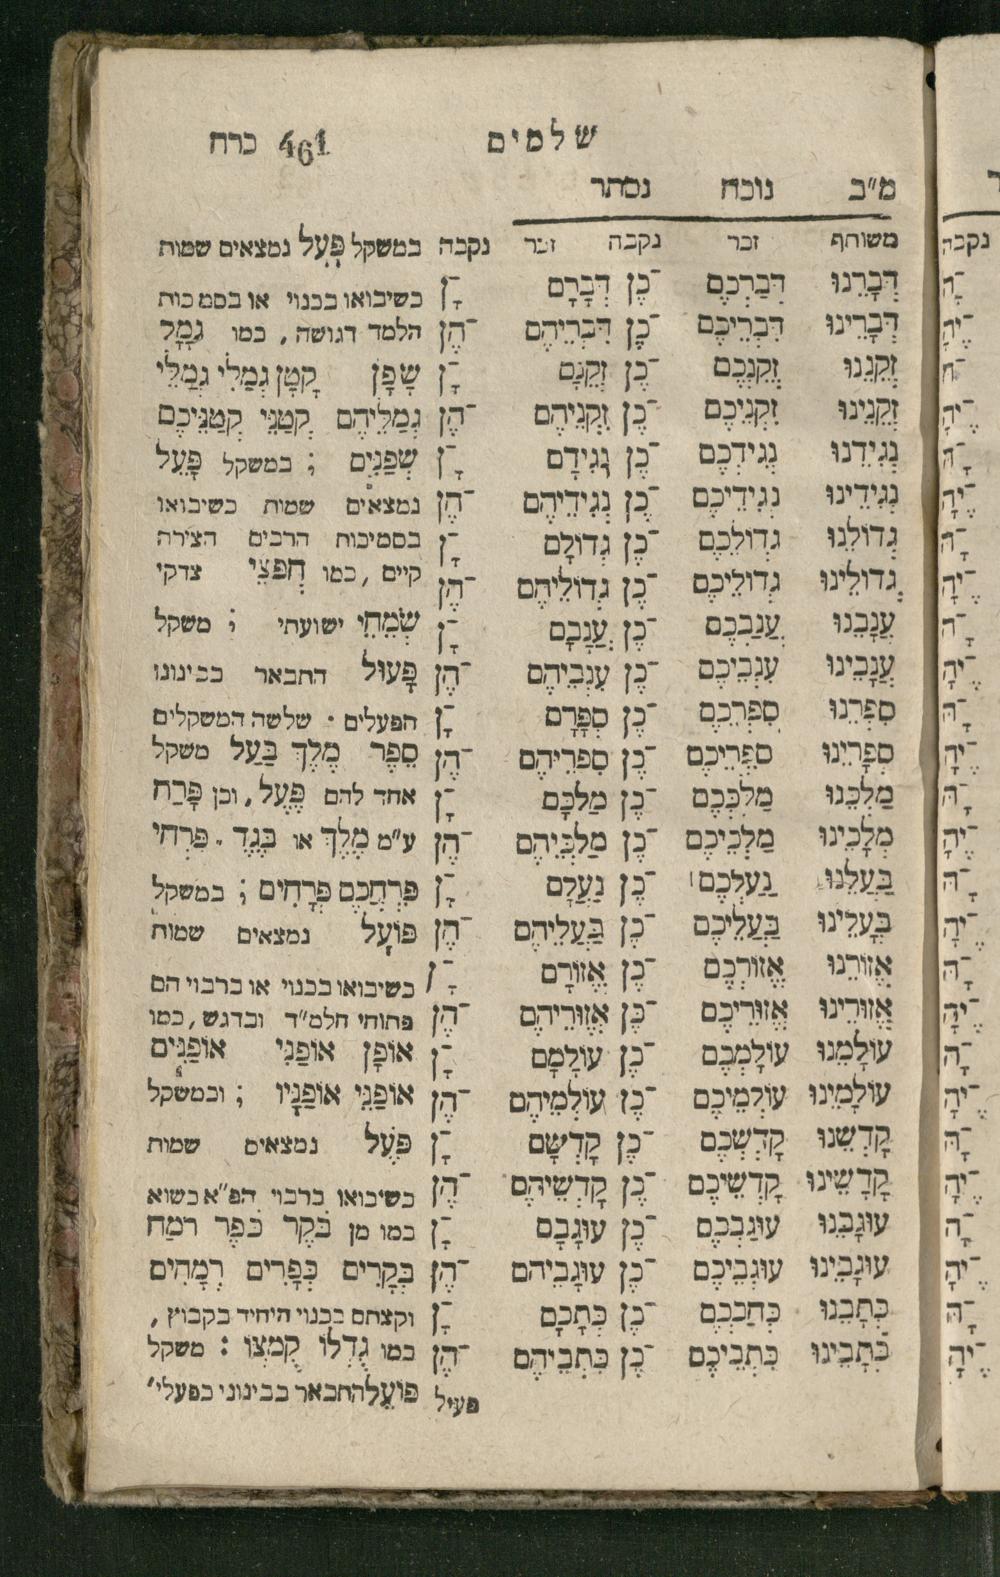 שלמים 461 כרח
מ"ב נוכח נסתר
משותף זכר נקבה זכר נקבה
דְּבָרֵנוּ דְּבַרְכֶם ־כֶן דְּבָרָם ־ָן
דְּבָרֵינוּ דִּבְרֵיכֶם ־כֶן דִּבְרֵיהֶם ־הֶן
זְקֵנֵנוּ זְקֵנְכֶם ־כֶן זְקֵנָם ־ָן
זְקֵנֵינוּ זִקְנֵיכֶם ־כֶן זִקְנֵיהֶם ־הֶן
נְגִידֵנוּ נְגִידְכֶם ־כֶן נְגִידָם ־ָן
נְגִידֵינוּ נְגִידֵיכֶם ־כֶן נְגִידֵיהֶם ־הֶן
גְדוֹלֵנוּ גְדוֹלְכֶם ־כֶן גְדוֹלָם ־ָן
גְדוֹלֵינוּ גְדוֹלֵיכֶם ־כֶן גְדוֹלֵיהֶם ־הֶן
עֲנָבֵנוּ עֲנַבְכֶם ־כֶן עֲנָבָם ־ָן
עֲנָבֵינוּ עִנְבֵיכֶם ־כֶן עִנְבֵיהֶם ־הֶן
סִפְרֵנוּ סִפְרְכֶם ־כֶן סִפְרָם ־ָן
סְפָרֵינוּ סִפְרֵיכֶם ־כֶן סִפְרֵיהֶם ־הֶן
מַלְכֵּנוּ מַלְכְּכֶם ־כֶן מַלְכָּם ־ָן
מְלָכֵינוּ מַלְכֵיכֶם ־כֶן מַלְכֵּיהֶם ־הֶן
בַּעֲלֵנוּ בַעלְכֶם ־כֶן בַעֲלָם ־ָן
בְּעָלֵינוּ בַּעֲלֵיכֶם ־כֶן בַּעֲלֵיהֶם ־הֶן
אֱזוֹרֵנוּ אֱזוֹרְכֶם ־כֶן אֱזוֹרָם ־ָן
אֱזוּרֵינוּ אֱזוּרֵיכֶם ־כֶן אֱזוּרֵיהֶם ־הֶן
עוֹלָמֵנוּ עוֹלָמְכֶם ־כֶן עוֹלָמָם ־ָן
עוֹלָמֵינוּ עוֹלְמֵיכֶם ־כֶן עוֹלְמֵיהֶם ־הֶן
קָדְשֵׁנוּ קָדְשְׁכֶם ־כֶן קָדְשָׁם ־ָן
קָדָשֵׁינוּ קָדְשֵׁיכֶם ־כֶן קָדְשֵׁיהֶם ־הֶן
עוּגָבֵנוּ עוּגַבְכֶם ־כֶן עוּגָבָם ־ָן
עוּגָבֵינוּ עוּגְבֵיכֶם ־כֶן עוּגָבֵיהם ־הֶן
כְּתָבֵנוּ כְּתַבְכֶם ־כֶן כְּתָבָם ־ָן
כְּתָבֵינוּ כִּתְבֵיכֶם ־כֶן כִּתְבֵיהֶם ־הֶן
במשקל פָּעָל נמצאים שמות
כשיבואו בכנוי או בסמכות
הלמד דגושה, כמו גָמָל
שָפָן קָטָן גְמַלִי גְמַלֵּי
גְמַלֵּיהֶם קְטַנֵּי קְטַנֵּיכֶם
שְפַנִּים ; במשקל פָּעֵל
נמצאים שמות כשיבואו
בסמיכות הרבים הצירה
קיים, כמו חֲפֵצֵי צדקי
שְׂמֵחֵי ישועתי ; משקל
פָּעוּל התבאר בבינוני
הפעלים . שלשה המשקלים
סֵפֶר מֶלֶךְ בַּעַל משקל
אחד להם פֶּעֶל, וכן פֶּרַח
ע"מ מֶלֶךְ או בֶּגֶד . פִּרְחִי
פִּרְחֲכֶם פְּרָחִים ; במשקל
פּוֹעָל נמצאים שמות
כשיבואו בכנוי או ברבוי הם
פתוחי הלמ"ד ובדגש, כמו
אוֹפָן אוֹפַנִּי אוֹפַנִּים
אוֹפַנֵּי אוֹפַנָּיו ; ובמשקל
פֹּעֶל נמצאים שמות
כשיבואו ברבוי הפ"א בשוא
כמו מן בֹּקֶר כֹּפֶר רֹמַח
בְּקָרִים כְּפָרִים רְמָחִים
וקצתם בכנוי היחיד בקבוץ,
כמו גֻדְלוֹ קֻמְצוֹ : משקל
פועֵל התבאר בבינוני בפעלי'
פעיל
נקבה
־ָהּ
־ֶיהָ